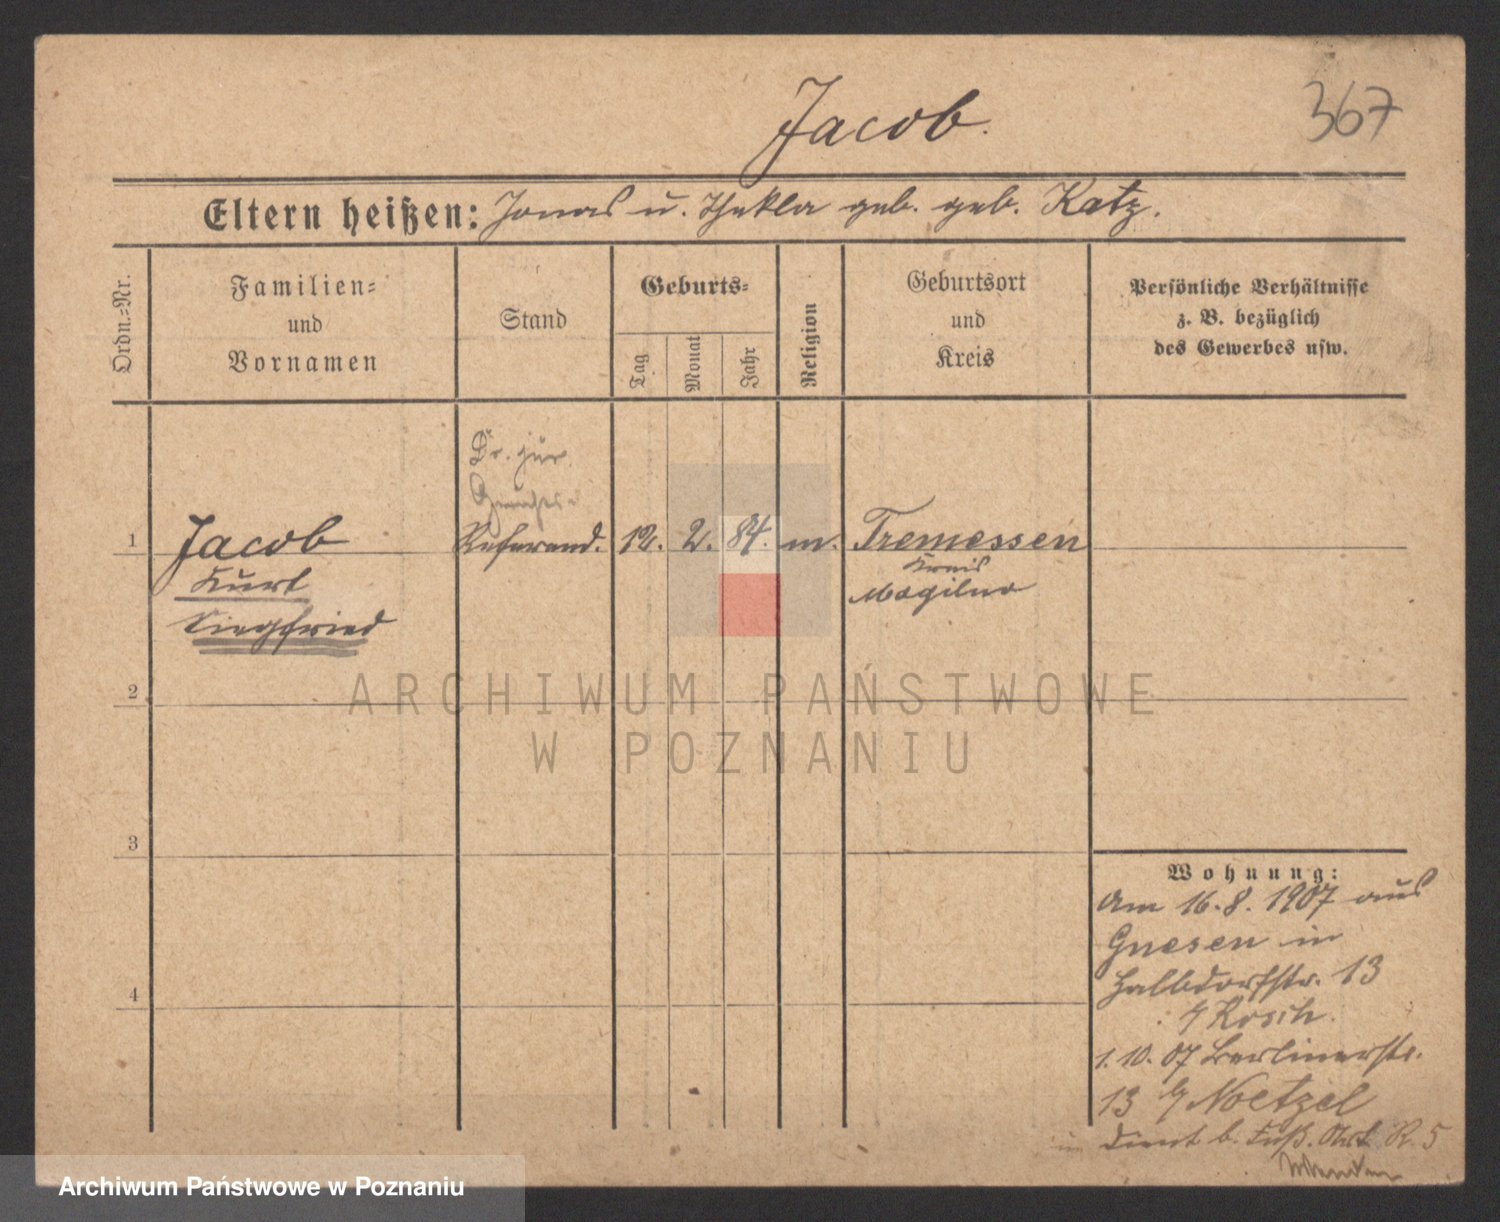 Jacob.
367
Eltern heißen: Jonas u. Thekla geb. geb. Katz.
Ordn.-Nr.
Familien-
und
Vornamen
Stand
Geburts-
Tag
Monat
Jahr
Religion
Geburtsort
und
Kreis
Persönliche Verhältnisse
z. B. bezüglich
des Gewerbes usw.
Dr. jur.
Gerichts-
1 Jacob Referend. 12. 2. 84. m. Tremessen
Kurt Kreis
Mogilno
Siegfried
2
ARCHIWUM PAŃSTWOWE
W POZNANIU
3
Wohnung:
Am 16.8.1907 aus
Gnesen in
4
Halbdorfstr. 13
b/ Kosch.
1.10.07 Berlinerstr.
13 b/ Noetzel
dient b. Fuß. Art. R. 5
Archiwum Państwowe w Poznaniu